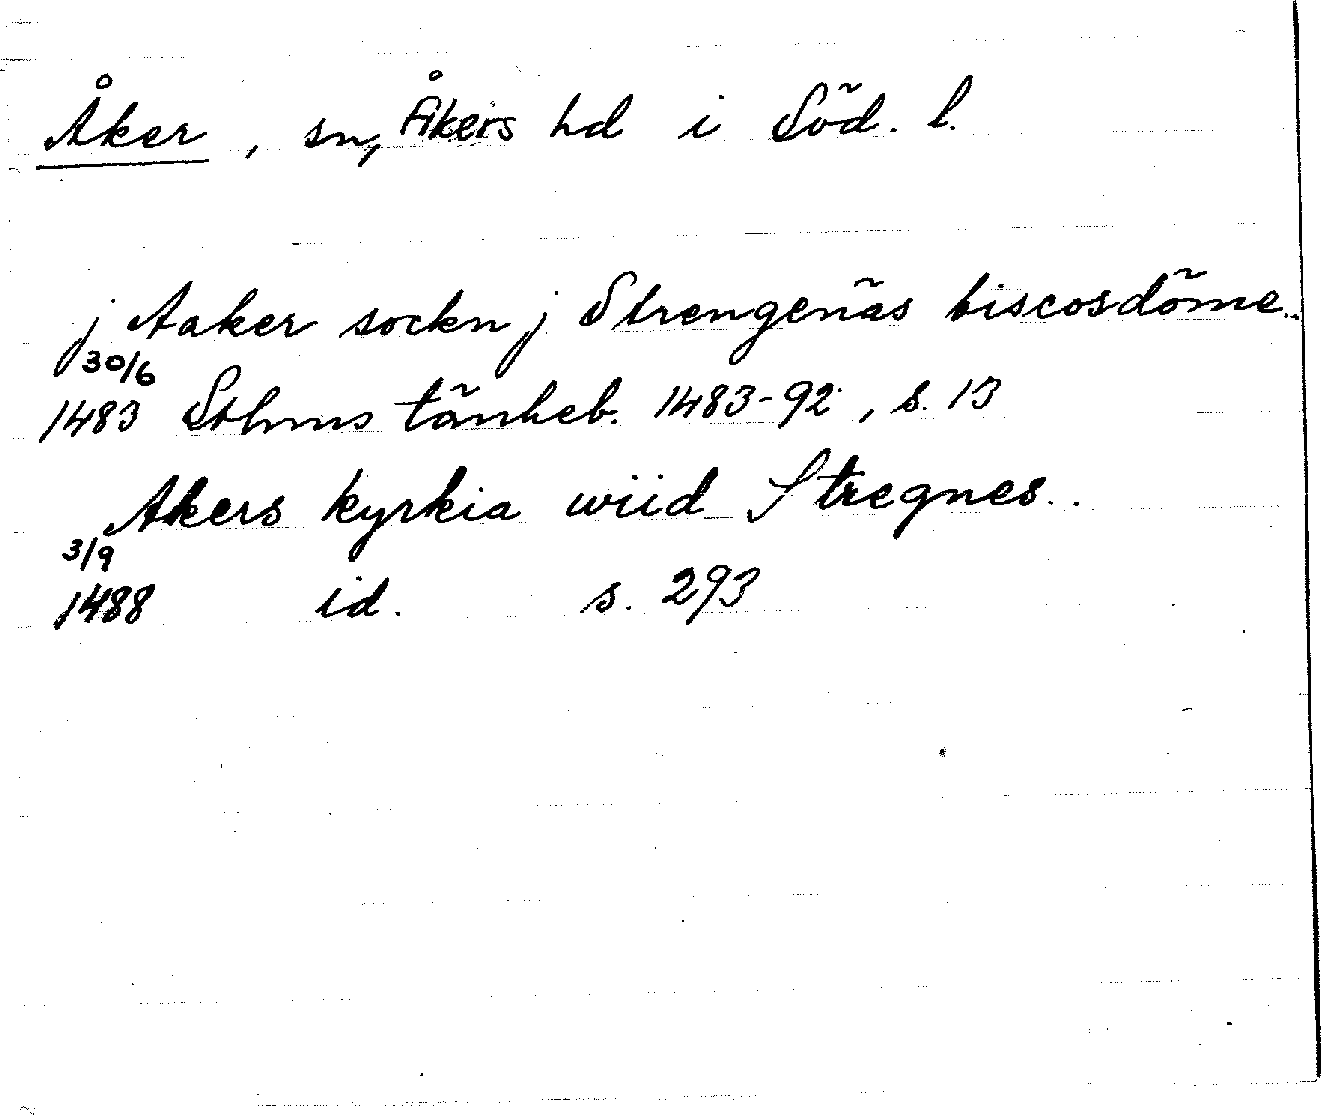 Åker, sn, Åkers hd i Söd. l.
j Aaker sockn j Strengenäs biscosdöme..
30/6
1483 Sthms tänkeb. 1483-92, s. 13
Akers kyrkia wiid Stregnes..
3/9
1488 id. s. 293